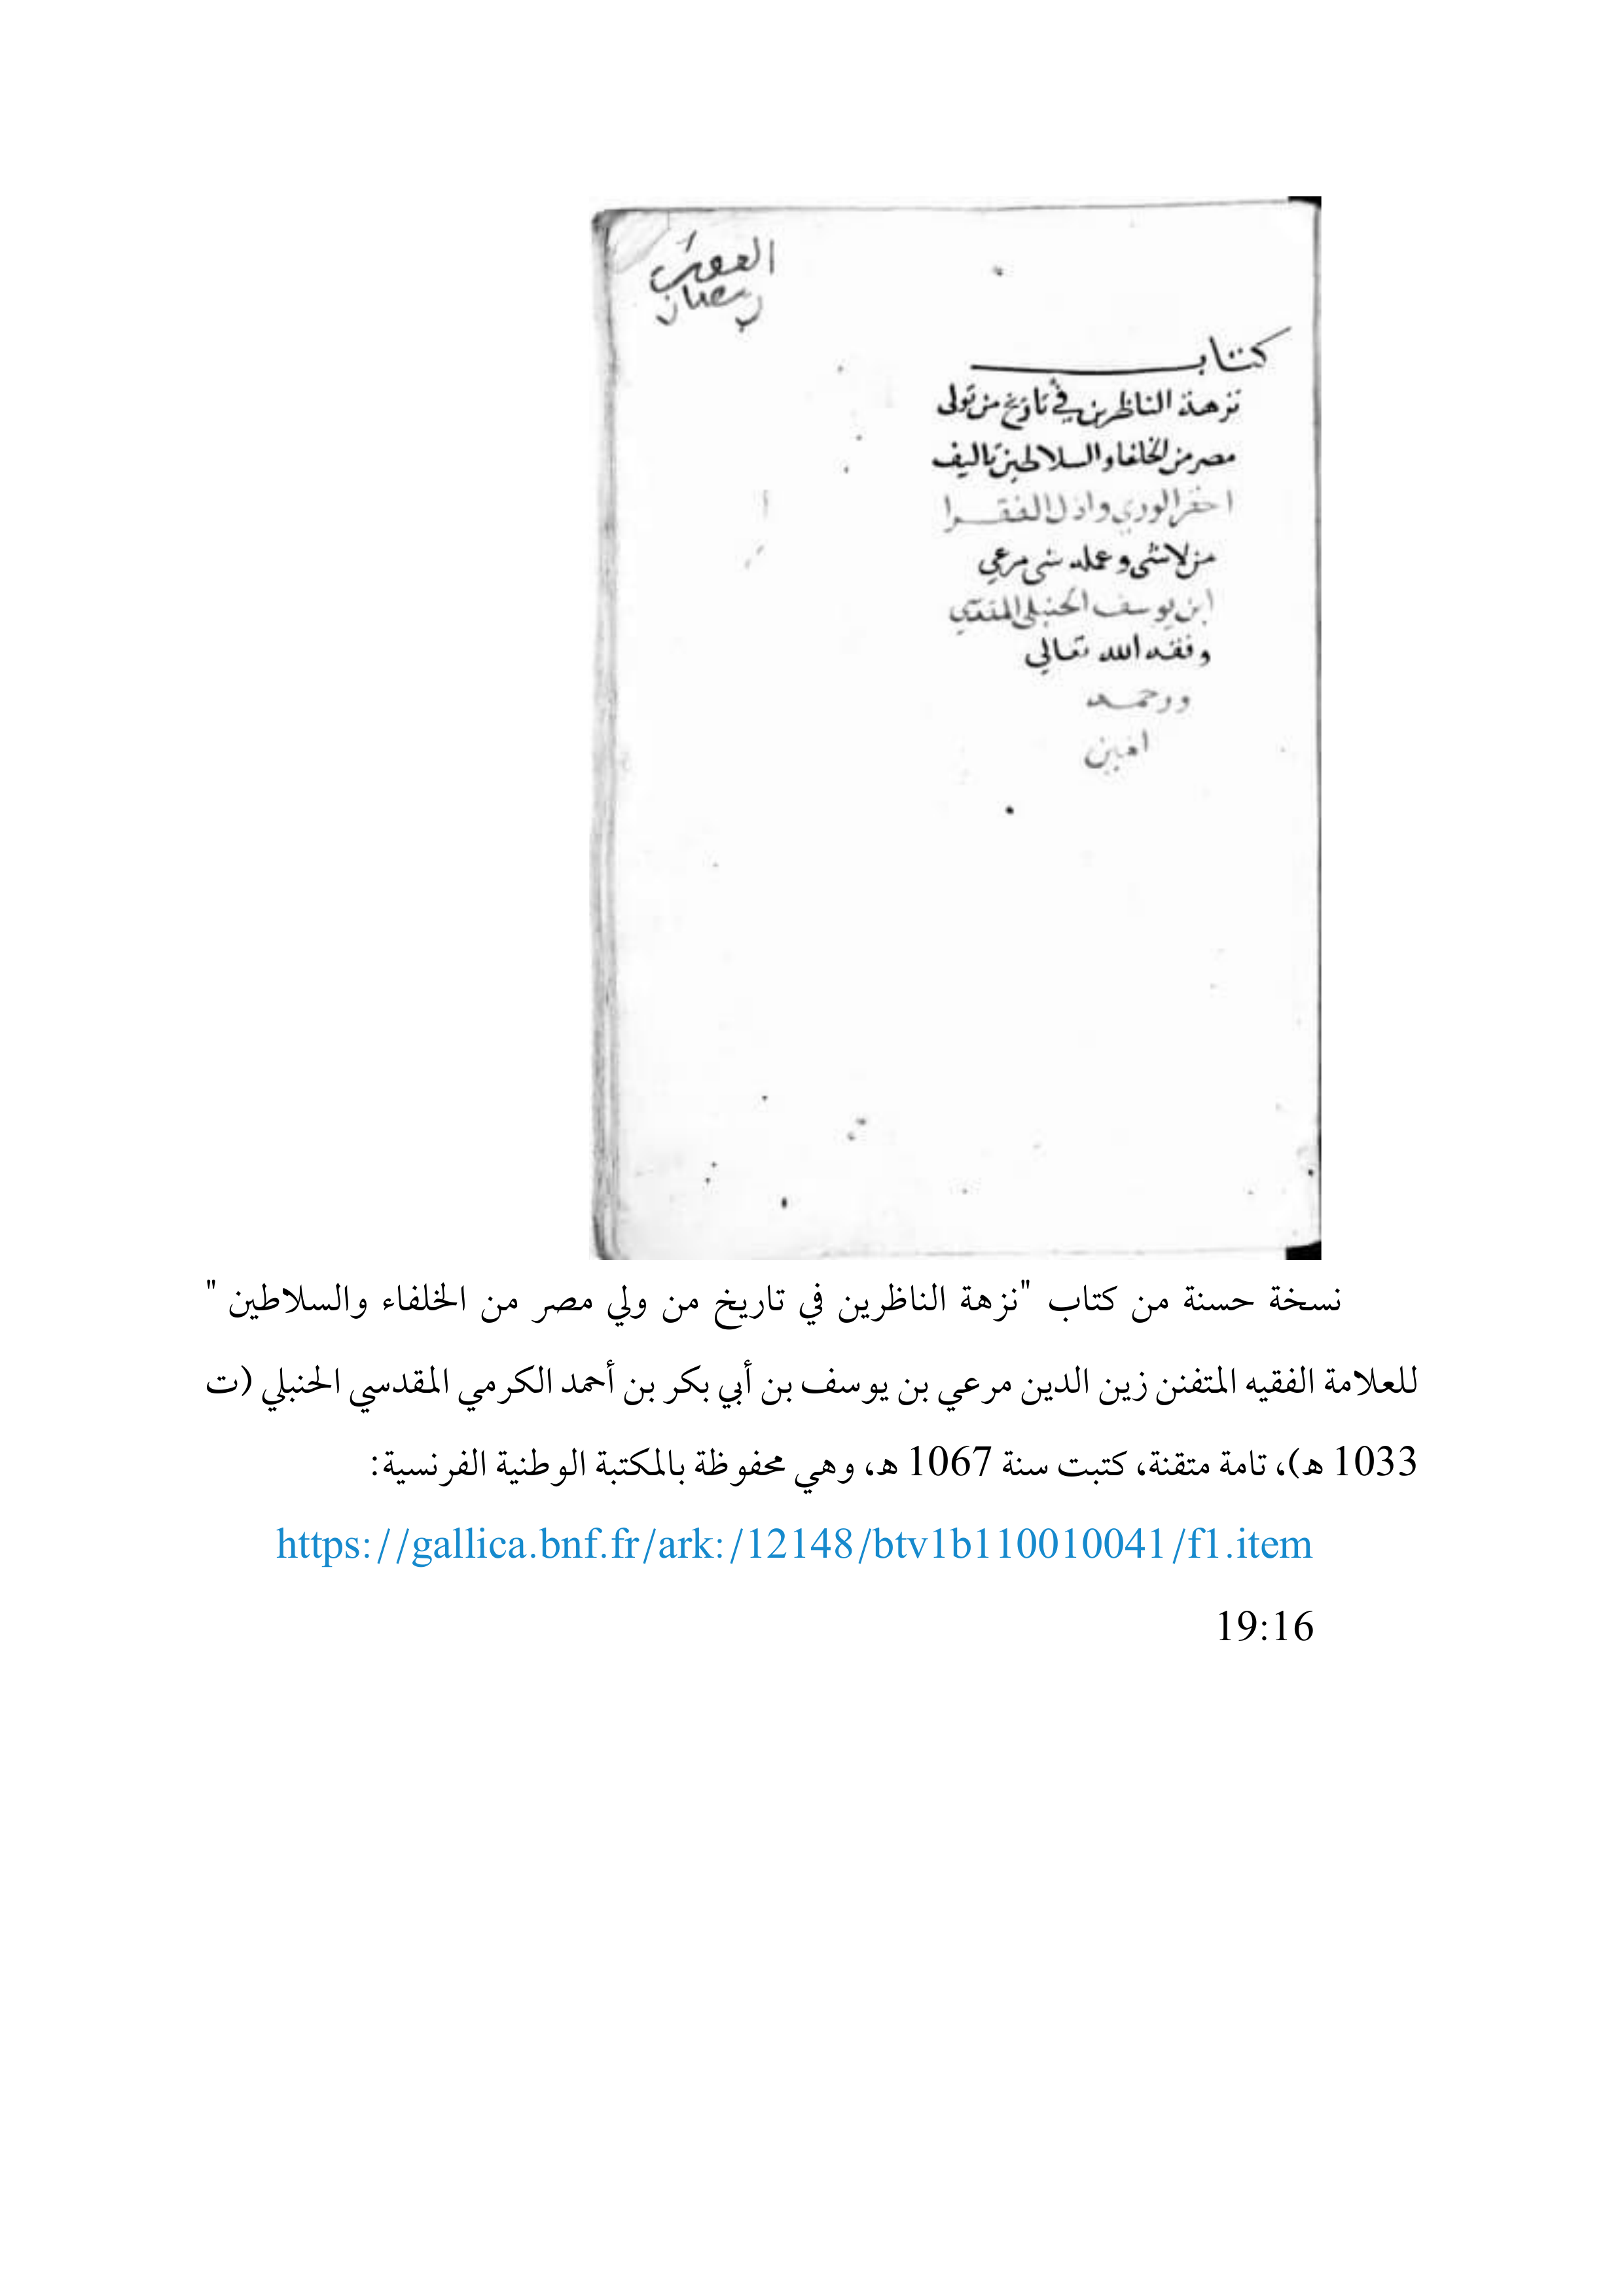 الفقير
رمضان
كتاب
نزهة الناظرين في تاريخ من تولى
مصر من الخلفا والسلاطين تاليف
احقر الوري واذل الفقرا
من لاشى وعمله شى مرعي
ابن يوسف الحنبلي المقدسي
وفقه الله تعالي
ورحمه
امين
نسخة حسنة من كتاب "نزهة الناظرين في تاريخ من ولي مصر من الخلفاء والسلاطين "
للعلامة الفقيه المتفنن زين الدين مرعي بن يوسف بن أبي بكر بن أحمد الكرمي المقدسي الحنبلي (ت
1033 ه)، تامة متقنة، كتبت سنة 1067 ه، وهي محفوظة بالمكتبة الوطنية الفرنسية:
https://gallica.bnf.fr/ark:/12148/btv1b110010041/f1.item
19:16